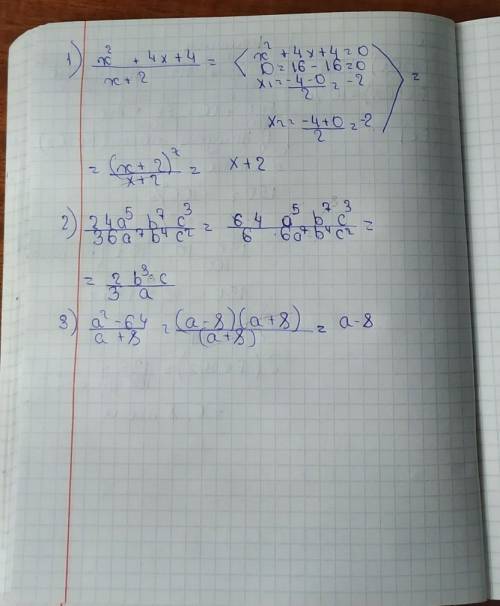 1) (x² + 4x + 4)/(x + 2) = ⟨ x² + 4x + 4 = 0
D = 16 - 16 = 0
x₁ = (-4 - 0)/2 = -2
x₂ = (-4 + 0)/2 = -2 ⟩ =
= (x + 2)⁷/(x + 2) = x + 2
2) (24a⁵ b⁷ c³)/(36a⁷ b⁴ c²) = (6 · 4 a⁵ b⁷ c³)/(6 · 6a⁷ b⁴ c²) =
= (2 b³ · c)/(3 a)
3) (a² - 64)/(a + 8) = (a - 8)(a + 8)/(a + 8) = a - 8